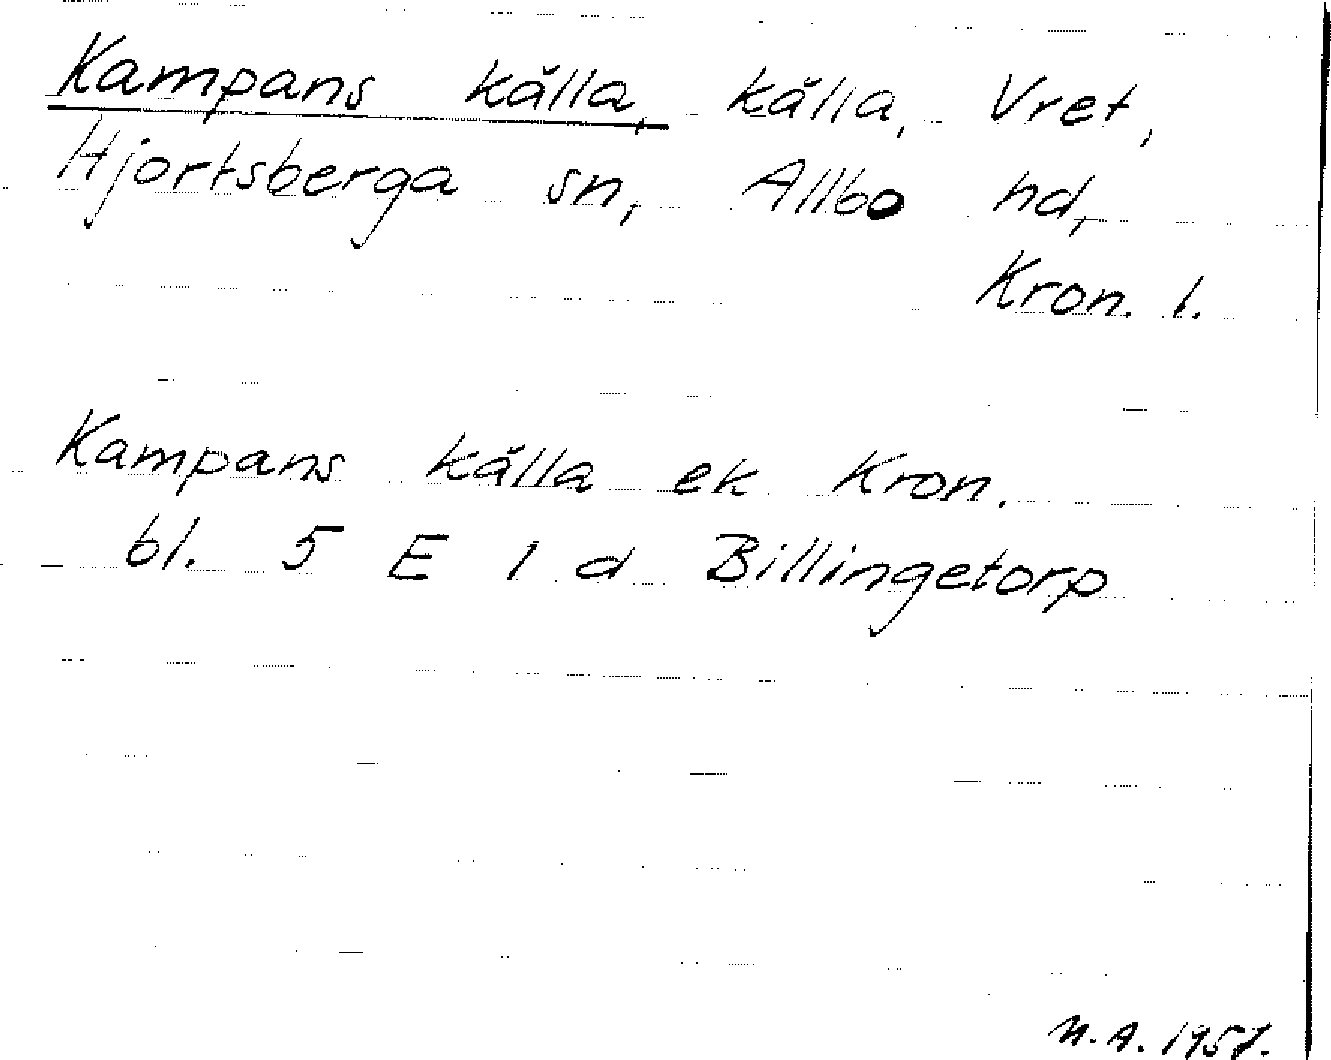 Kampans källa, källa, Vret,
Hjortsberga sn, Allbo hd,
Kron. l.
Kampans källa ek Kron.
bl. 5 E 1 d Billingetorp
N.A. 1957.